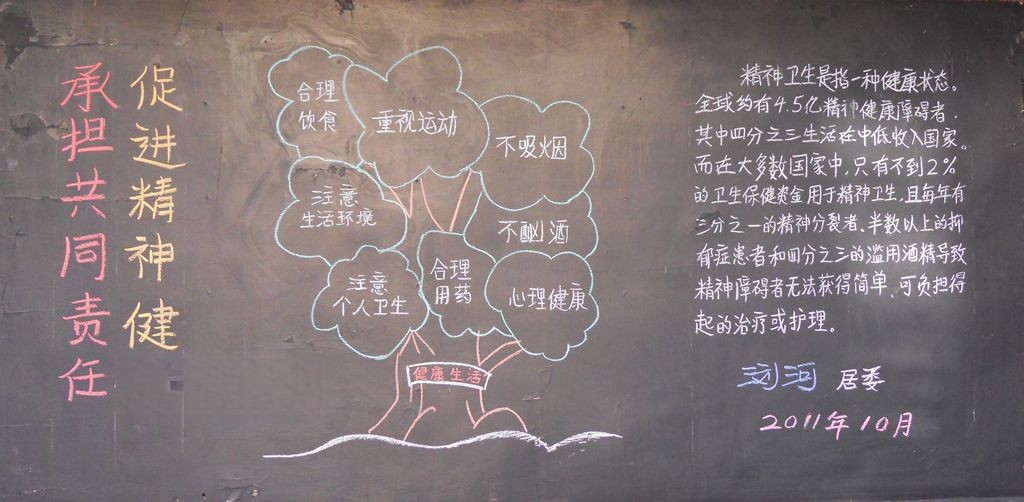 承担共同责任
促进精神健
合理
饮食
重视运动
不吸烟
注意
生活环境
不酗酒
注意
个人卫生
合理
用药
心理健康
健康生活
精神卫生是指一种健康状态。
全球约有4.5亿精神健康障碍者,
其中四分之三生活在中低收入国家。
而在大多数国家中,只有不到2%
的卫生保健资金用于精神卫生,且每年有
三分之一的精神分裂者、半数以上的抑
郁症患者和四分之三的滥用酒精导致
精神障碍者无法获得简单、可负担得
起的治疗或护理。
浏河 居委
2011年10月